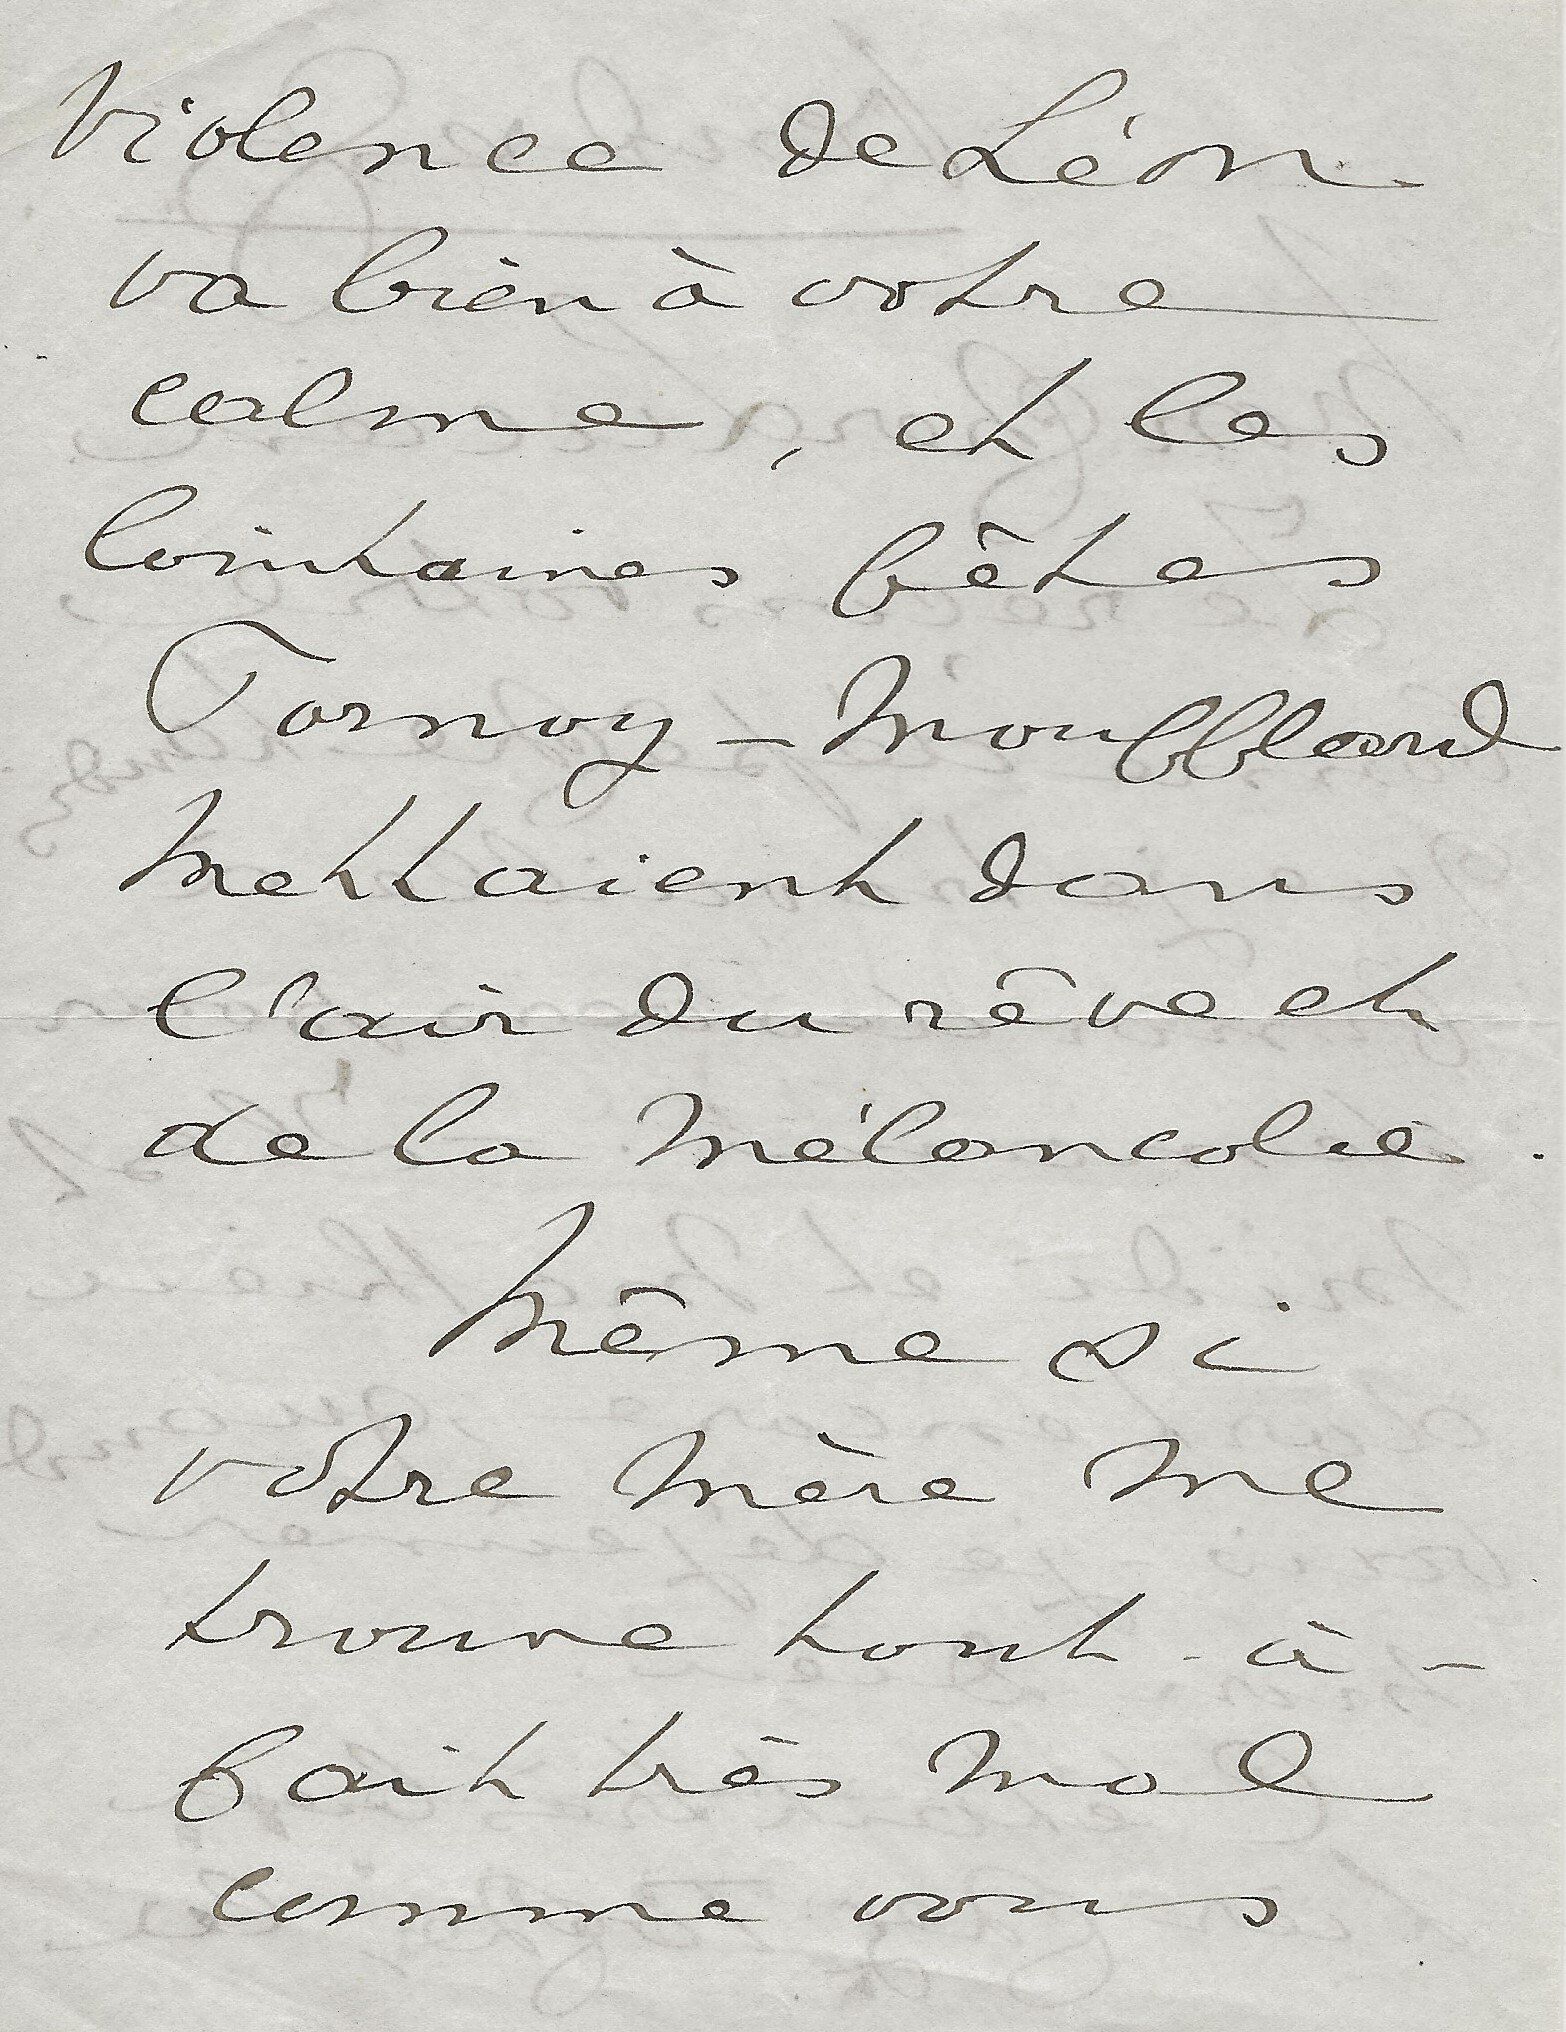 Violence de Léon
va bien à votre
calme, et les
lointaines bêtes
Tornoy - Moufflard
Mettaient dans
l'air du rêve et
de la Mélancolie.
Même si
votre Mère me
trouve tout-à-
fait très mal
comme vous